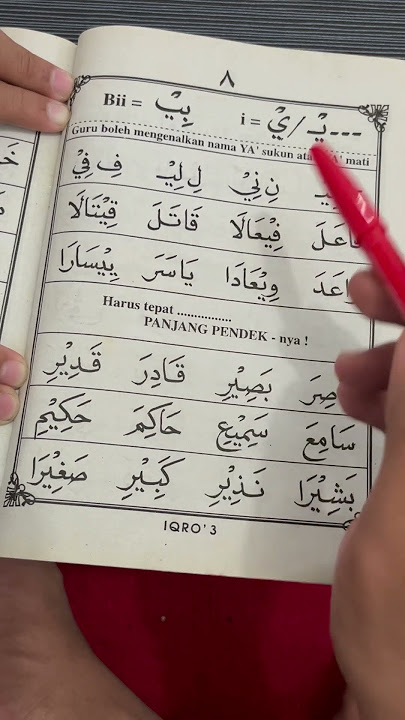 ٨
Bii = بِيْ i = يْ / يْـ ---
Guru boleh mengenalkan nama YA' sukun atau YA' mati
نِ نِيْ لِ لِيْ فِ فِيْ
فِيْعَالَا قَاتَلَ قِيْتَالَا
وِيْعَادَا يَاسَرَ يِيْسَارَا
Harus tepat ................
PANJANG PENDEK - nya !
بَصِيْرِ قَادِرَ قَدِيْرِ
سَامِعَ سَمِيْعِ حَاكِمَ حَكِيْمِ
بَشِيْرَا نَذِيْرِ كَبِيْرِ صَغِيْرَا
IQRO' 3